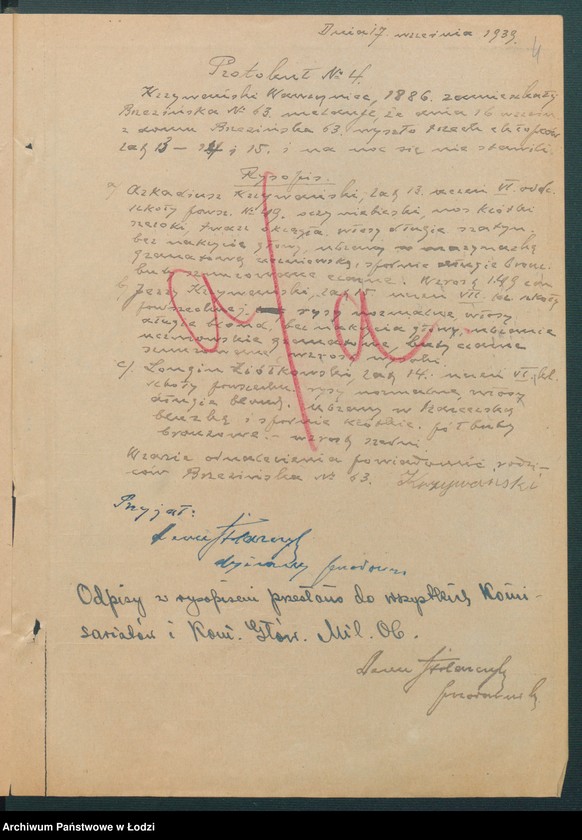 Dnia 17 września 1939.
4
Protokuł № 4.
Krzywański Wawrzyniec, 1886. zamieszkały
Brzezińska № 63. melduje, że dnia 16 wrześn
z domu Brzezińska 63, wyszło trzech chłopców
lat 13 – 14 i 15. i na noc się nie stawili.
Rysopis.
a) Arkadiusz Krzywański, lat 13. uczeń VI. oddz.
szkoły powsz. № 49. oczy niebieskie, nos krótki
szeroki, twarz okrągła, włosy długie szatyn,
bez nakrycia głowy, ubrany w marynarkę
granatową uczniowską, spodnie długie bronz.
buty sznurowane czarne. Wzrost 149 cm
b) Jerzy Krzywański, lat 15. uczeń VII. kl. szkoły
powszechnej, rysy normalne, włosy
długie blond, bez nakrycia głowy, ubranie
uczniowskie granatowe, buty czarne
sznurowane, wzrost wysoki.
c) Longin Ziółkowski, lat 14. uczeń VI. kl.
szkoły powszechn. rysy normalne, włosy
długie blond. ubrany w
bluzkę i spodnie krótkie. półbuty
bronzowe. – wzrost średni
W razie odnalezienia powiadomić rodzi-
ców Brzezińska № 63. Krzywański
a/a
Przyjął:
dyżurny
Odpisy z rysopisem przesłano do wszystkich Komi-
sariatów i Kom. Głów. Mil. Ob.
Archiwum Państwowe w Łodzi